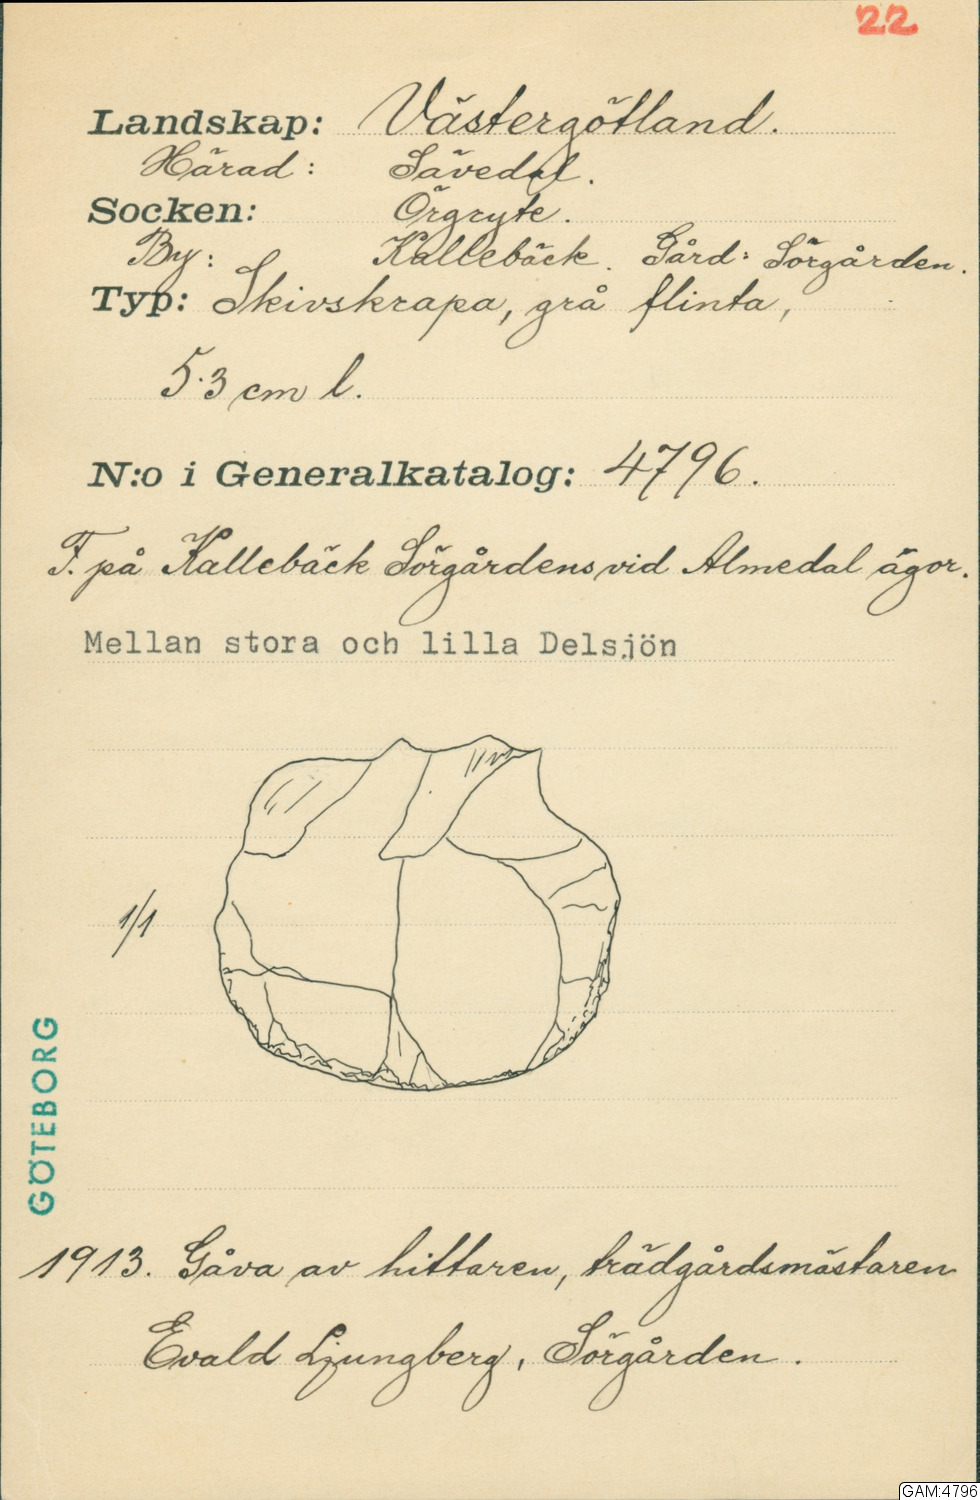 22
Landskap: Västergötland.
Härad: Sävedal.
Socken: Örgryte.
By: Kallebäck. Gård: Sörgården.
Typ: Skivskrapa, grå flinta,
5.3 cm l.
N:o i Generalkatalog: 4796.
F. på Kallebäck Sörgårdens vid Almedal ägor.
Mellan stora och lilla Delsjön
1/1
GÖTEBORG
1913. Gåva av hittaren, trädgårdsmästaren
Evald Ljungberg, Sörgården.
GAM:4796